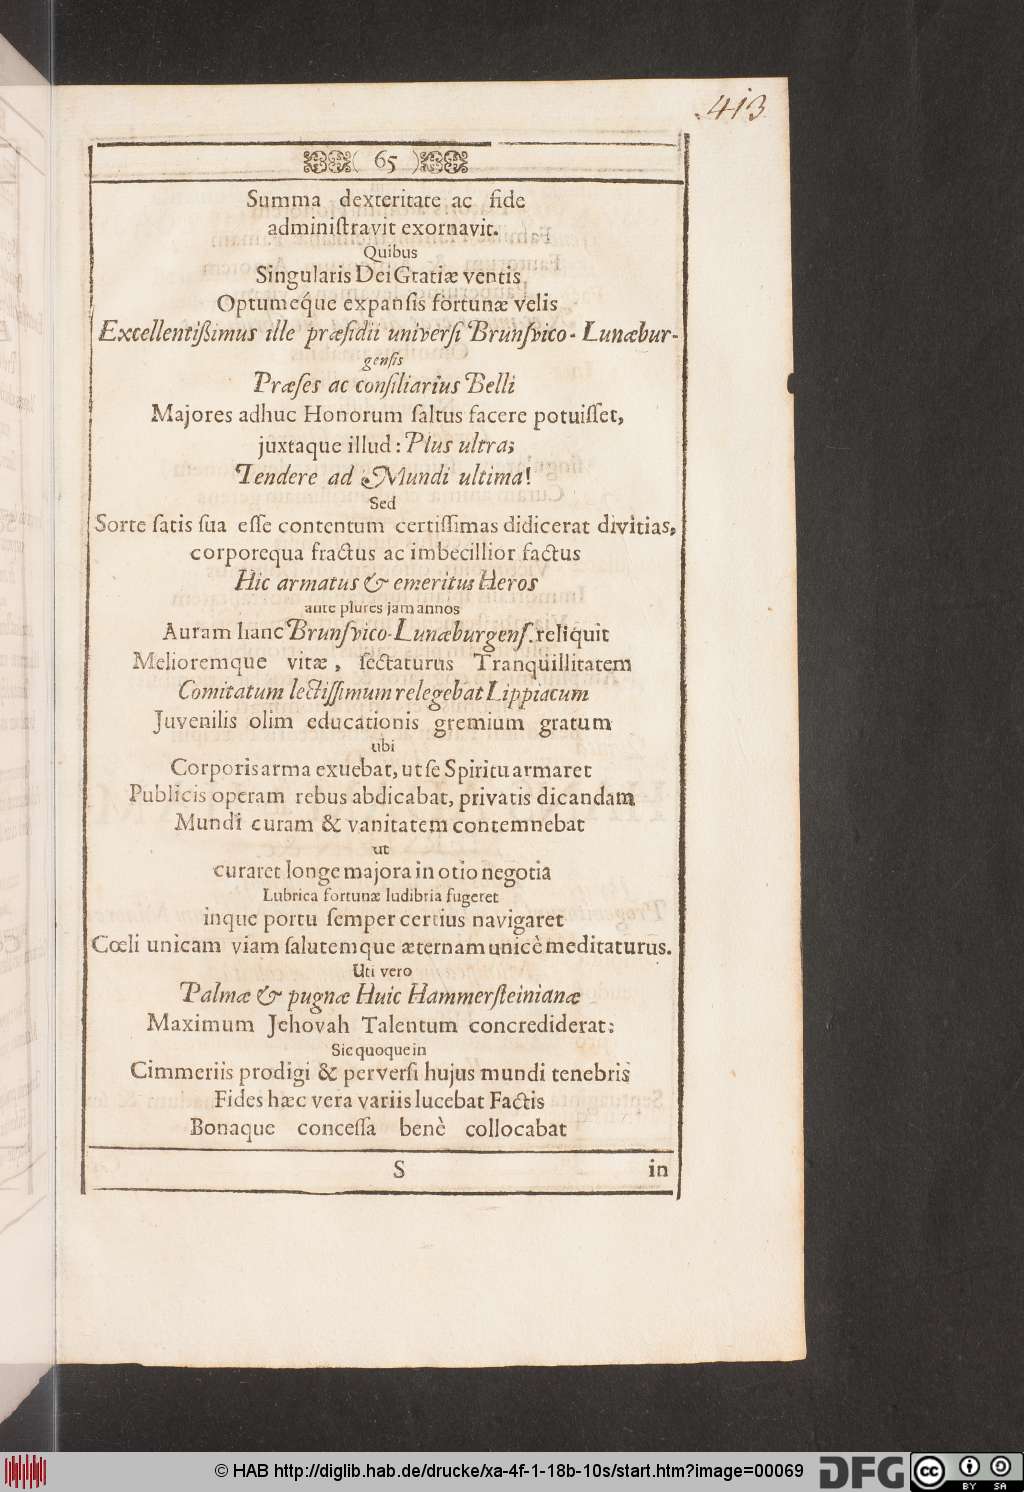 413
( 65 )
Summa dexteritate ac fide
adminiſtravit exornavit.
Quibus
Singularis Dei Gratiæ ventis
Optumeq́ue expanſis fortunæ velis
Excellentißimus ille præſidii univerſi Brunſvico-Lunæbur-
genſis
Præſes ac conſiliarius Belli
Majores adhuc Honorum ſaltus facere potuiſſet,
juxtaque illud: Plus ultra;
Tendere ad Mundi ultima!
Sed
Sorte ſatis ſua eſſe contentum certiſſimas didicerat divitias,
corporequa fractus ac imbecillior factus
Hic armatus & emeritus Heros
ante plures jam annos
Auram hanc Brunſvico-Lunæburgenſ. reliquit
Melioremque vitæ, ſectaturus Tranquillitatem
Comitatum lectiſſimum relegebat Lippiacum
Juvenilis olim educationis gremium gratum
ubi
Corporis arma exuebat, ut ſe Spiritu armaret
Publicis operam rebus abdicabat, privatis dicandam
Mundi curam & vanitatem contemnebat
ut
curaret longe majora in otio negotia
Lubrica fortunæ ludibria fugeret
inque portu ſemper certius navigaret
Cœli unicam viam ſalutemque æternam unicè meditaturus.
Uti vero
Palmæ & pugnæ Huic Hammerſteinianæ
Maximum Jehovah Talentum concrediderat:
Sic quoque in
Cimmeriis prodigi & perverſi hujus mundi tenebris
Fides hæc vera variis lucebat Factis
Bonaque conceſſa benè collocabat
S in
© HAB http://diglib.hab.de/drucke/xa-4f-1-18b-10s/start.htm?image=00069 DFG cc BY SA